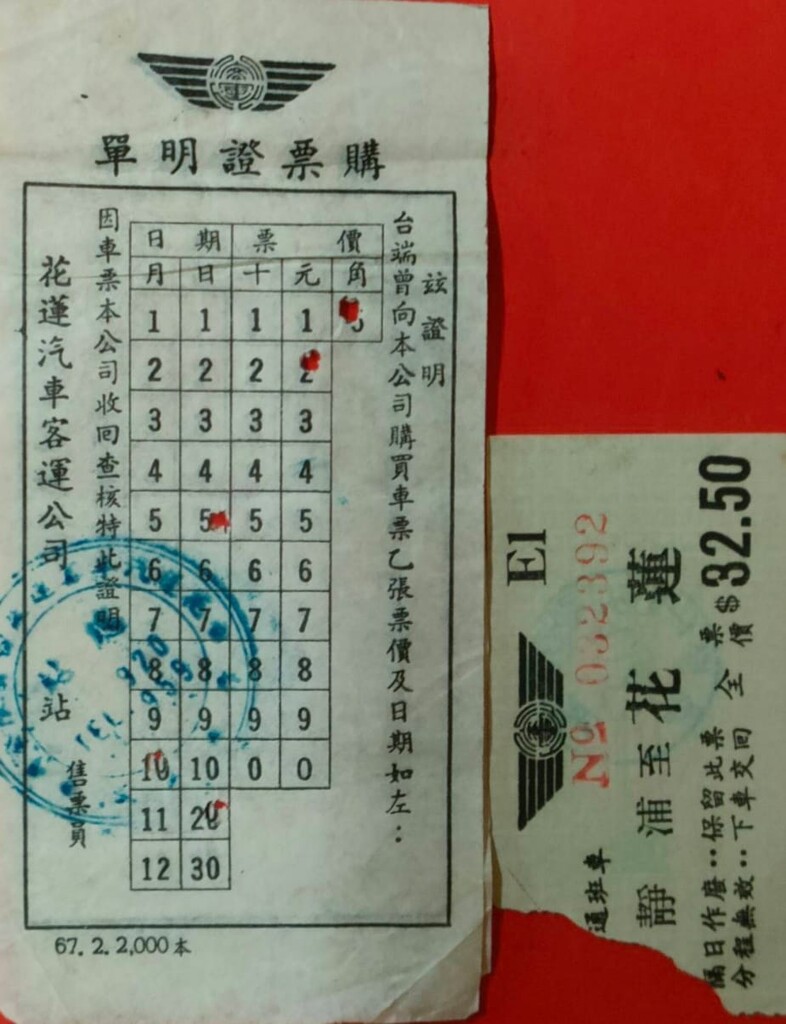 購票證明單
茲證明
台端曾向本公司購買車票乙張票價及日期如左：
日期 票價
月 日 十 元 角
1 1 1 1 5
2 2 2 2
3 3 3 3
4 4 4 4
5 5 5 5
6 6 6 6
7 7 7 7
8 8 8 8
9 9 9 9
10 10 0 0
11 20
12 30
因車票本公司收回查核特此證明
花蓮汽車客運公司 站
售票員
67. 2. 2,000本
E1
№ 032392
通班車
靜浦至花蓮
全票價 $32.50
隔日作廢：保留此票
分程無效：下車交回